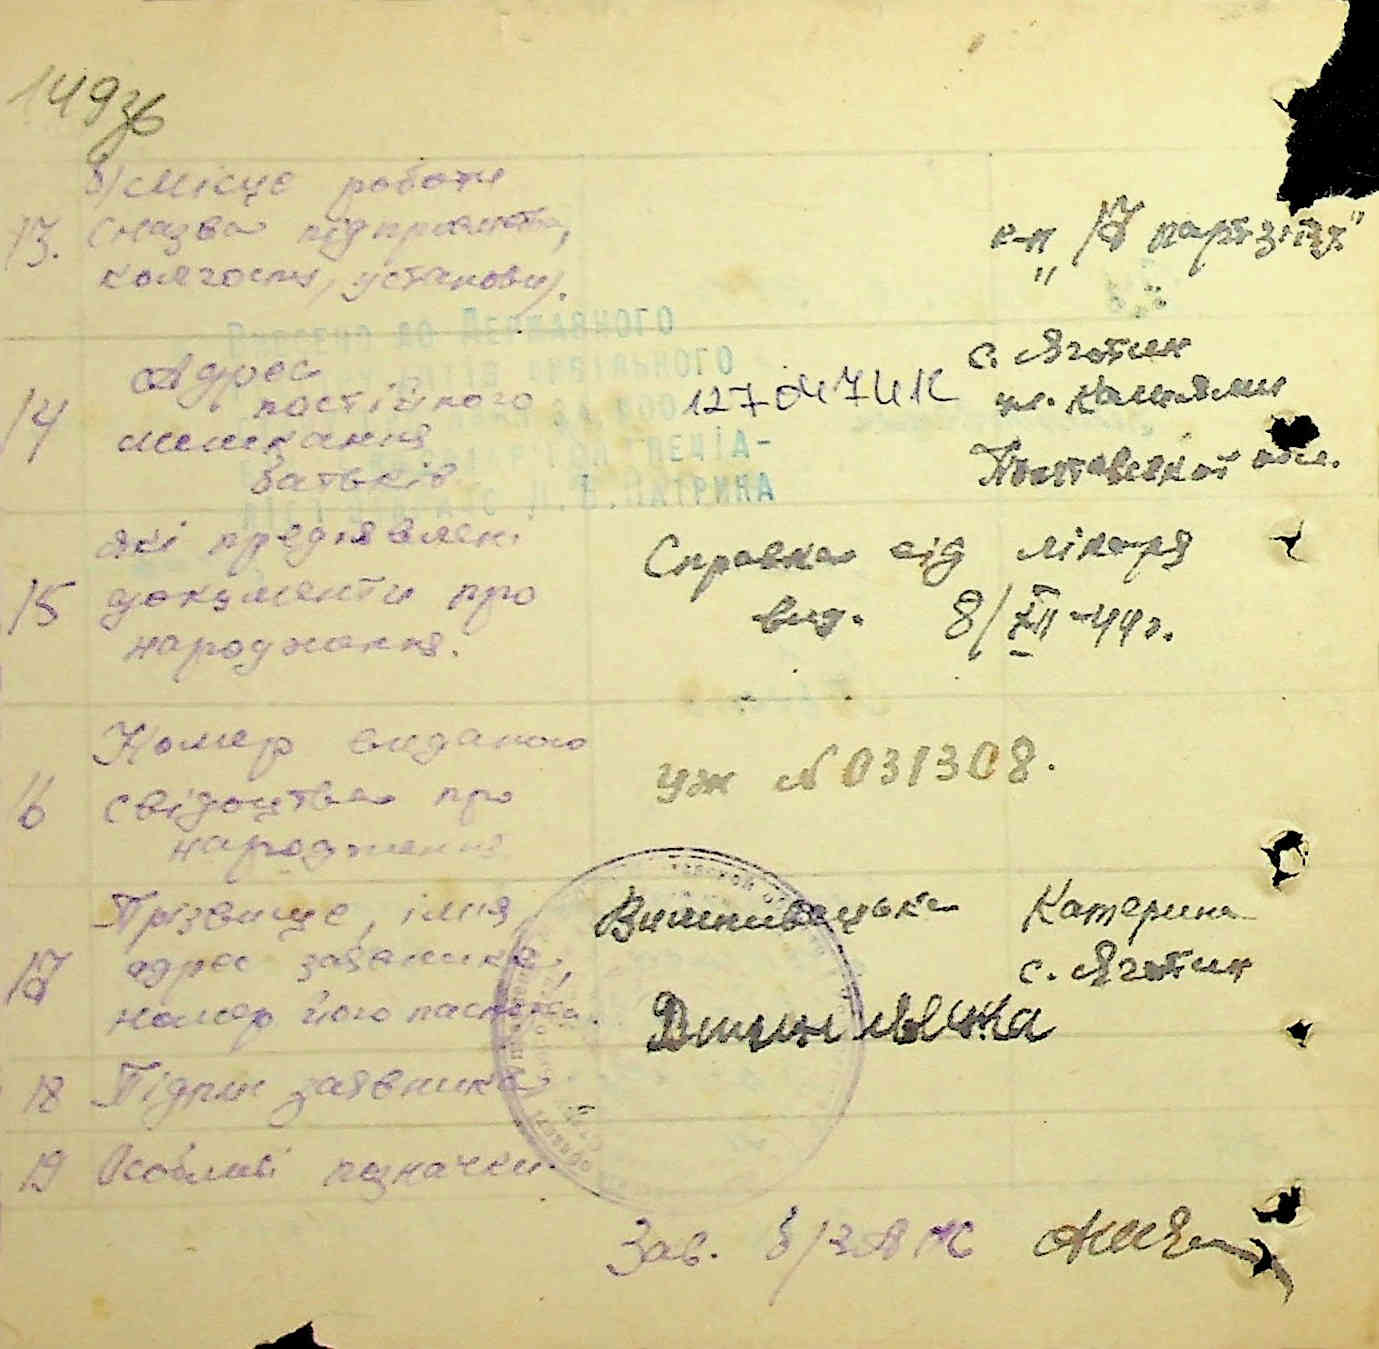 149зв
б) Місце роботи
13. (назва підприємства,
колгоспу, установи).
к-п "17 партз'їзд"
Внесено до Державного
14 Адрес
постійного
мешкання
батьків
12704741К
с. Яготин
Полтавської обл.
ліст від ... Л.В.Патрина
15 які пред'явлені
документи про
народження.
Справка від лікаря
вид. 8/XII-44г.
16 Номер виданого
свідоцтва про
народження
УЖ N 031308.
17 Прізвище, імя
адрес заявника,
номер його паспорта.
Вишнивецька Катерина
с. Яготин
18 Підпис заявника
19 Особливі позначки.
Зав. б/ЗАГС